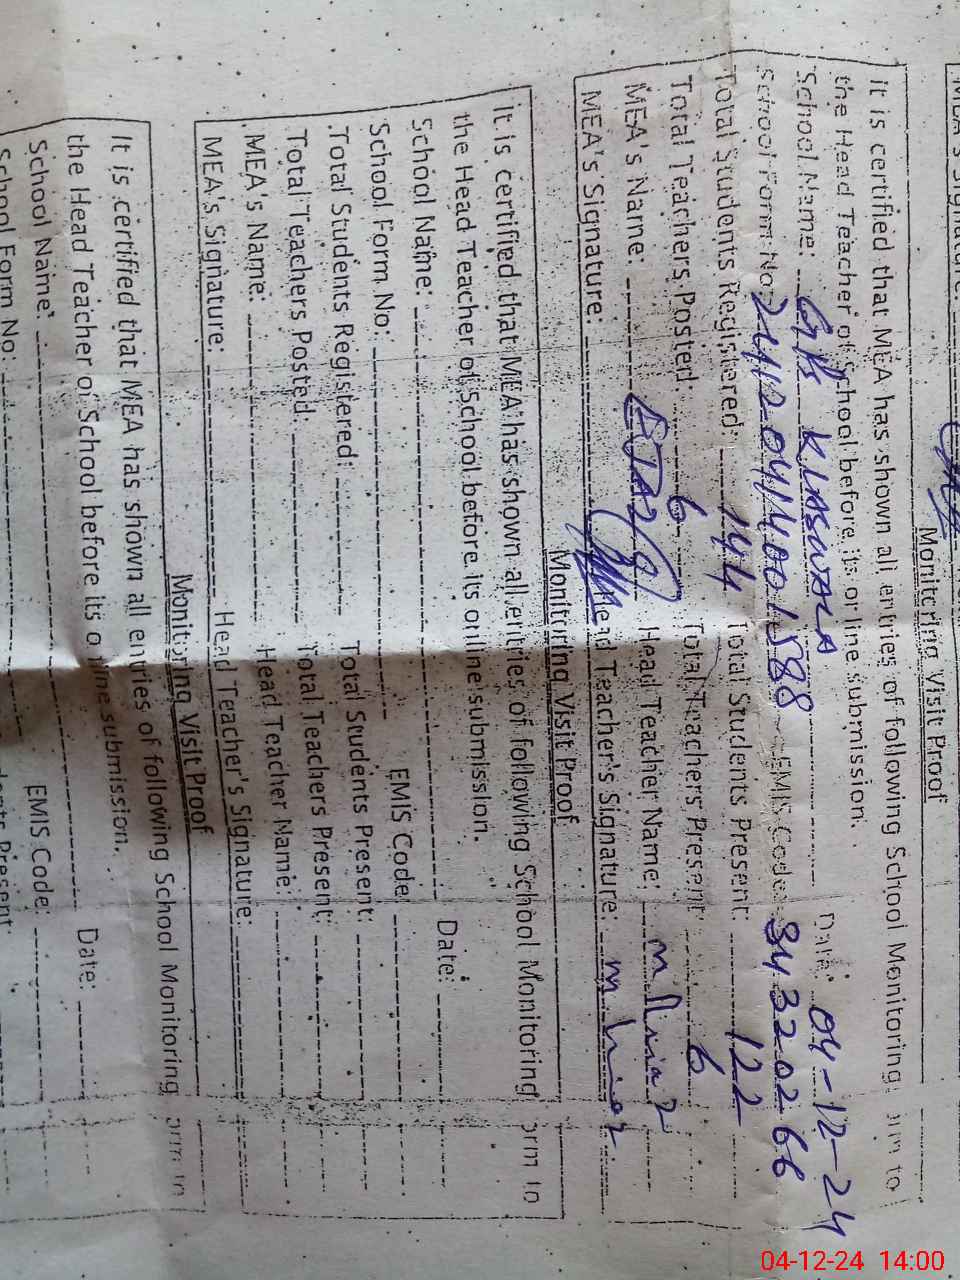 Monitoring Visit Proof
It is certified that MEA has shown all entries of following School Monitoring orm to
the Head Teacher of School before its online submission.
School Name: GPS KLASWALA Date: 04-12-24
School Form No: 2412-0414001588 EMIS Code: 34320266
Total Students Registered: 144 Total Students Present: 122
Total Teachers Posted: 6 Total Teachers Present: 6
MEA's Name: Head Teacher Name:
MEA's Signature: Head Teacher's Signature:
Monitoring Visit Proof
It is certified that MEA has shown all entries of following School Monitoring orm to
the Head Teacher of School before its online submission.
School Name: Date:
School Form No: EMIS Code:
Total Students Registered: Total Students Present:
Total Teachers Posted: Total Teachers Present:
MEA's Name: Head Teacher Name:
MEA's Signature: Head Teacher's Signature:
Monitoring Visit Proof
It is certified that MEA has shown all entries of following School Monitoring orm
the Head Teacher of School before its online submission.
School Name: Date:
School Form No: EMIS Code:
04-12-24 14:00